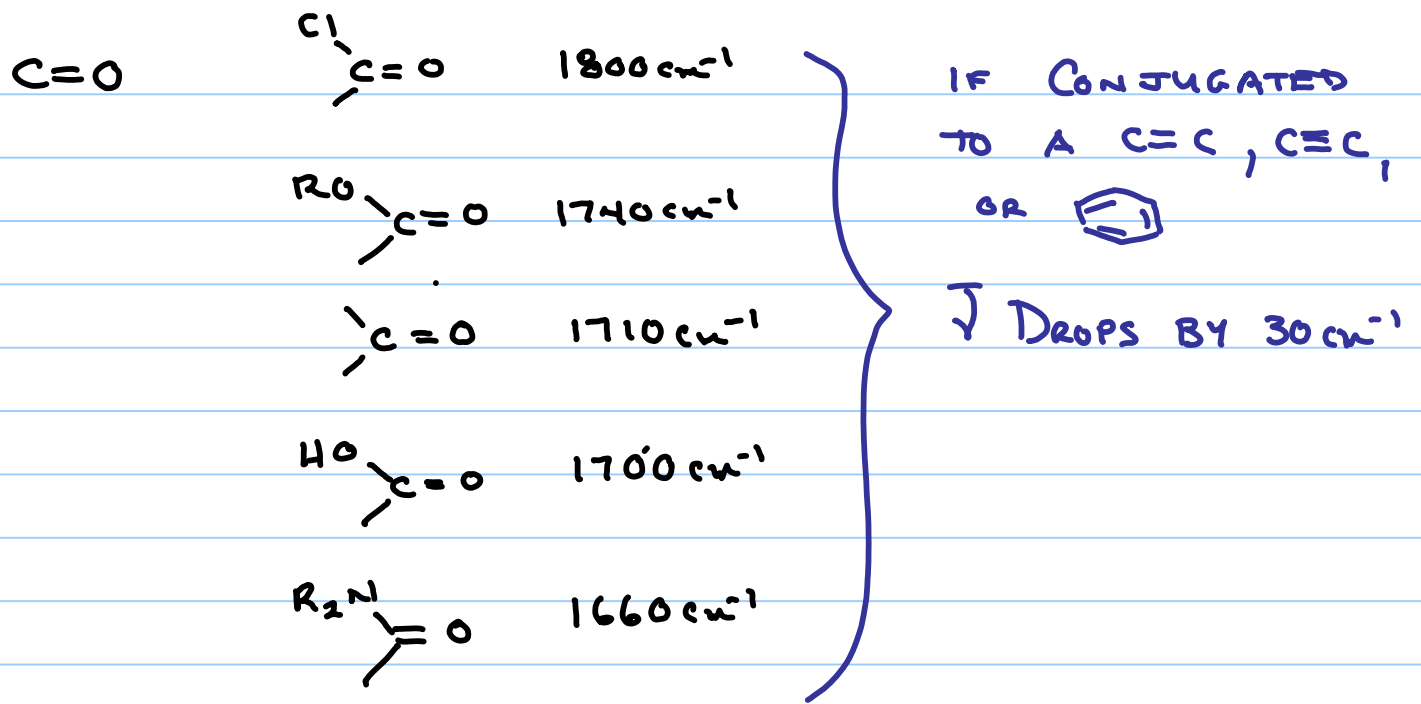 C=O
Cl
C=O 1800 cm⁻¹
RO
C=O 1740 cm⁻¹
C=O 1710 cm⁻¹
HO
C=O 1700 cm⁻¹
R₂N
=O 1660 cm⁻¹
IF CONJUGATED
TO A C=C, C≡C,
OR
ν̄ DROPS BY 30 cm⁻¹